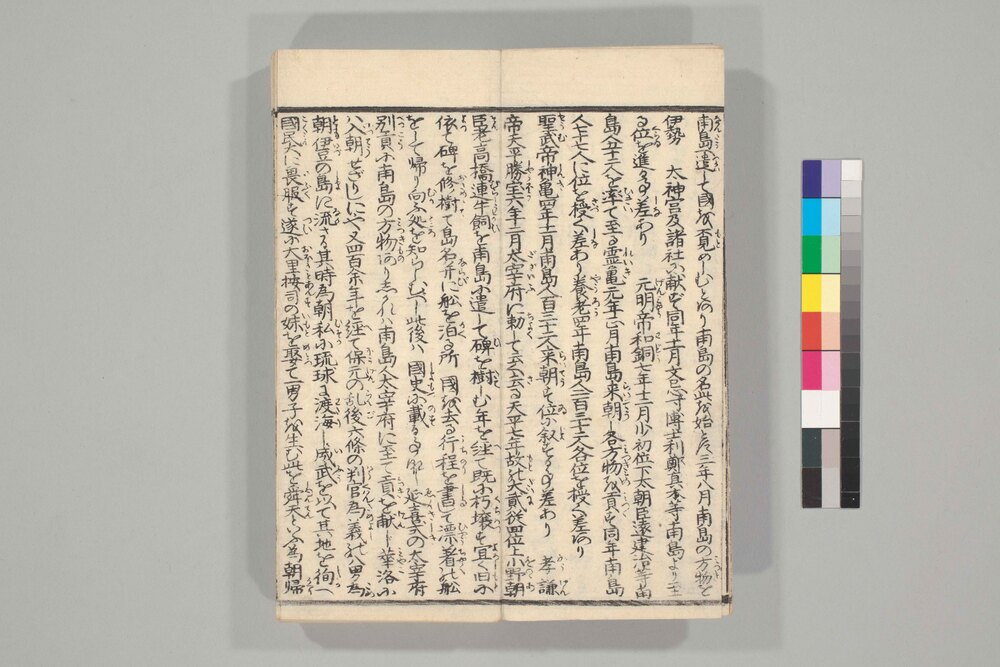 南島に遣して國を覓めしむとあり南島の名此を始とす三年八月南島の方物を
伊勢 大神宮及諸社に献ず同年十一月文忌寸博士刑部真木等南島より至
る位を進る事差あり 元明帝和銅七年十二月少初位下太朝臣遠建治等南
島人五十二人を率て至る霊亀元年正月南島来朝し各方物を貢す同年南島
人七十七人に位を授く差あり養老四年南島人二百三十二人各位を授く差あり
聖武帝神亀四年十一月南島人百三十二人来朝す位に叙する事差あり 孝謙
帝天平勝宝六年二月太宰府に勅して云去る天平七年故大貳従四位上小野朝
臣老高橋連牛飼を南島に遣して碑を樹しむ年を経て既に朽壊す宜く旧に
依て碑を修樹て島名并に舩を泊る所 國を去る行程を書て漂着の舩
をして帰り向ふ処を知らしむべし此後ハ 國史に載る事なし延喜式の太宰府
別貢に南島の方物あり 南島人太宰府に至て貢を献し華洛に
ハ入朝せざりしにや又四百余年を経て保元の乱後六條の判官為義の八男為
朝伊豆の島に流さる其時為朝私に琉球に渡海し威武を以て其地を徇へ
國人に畏服す遂に大里按司の妹を娶て一男子を生む此を舜天といふ為朝帰